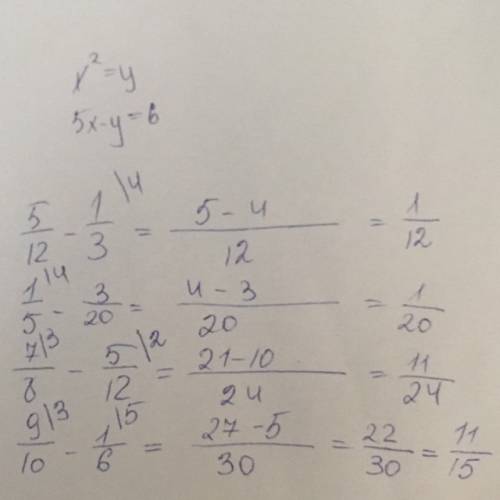 x² = y
5x - y = 6
5/12 - 1/3 \4 = (5 - 4)/12 = 1/12
1/5 \4 - 3/20 = (4 - 3)/20 = 1/20
7/8 \3 - 5/12 \2 = (21 - 10)/24 = 11/24
9/10 \3 - 1/6 \5 = (27 - 5)/30 = 22/30 = 11/15